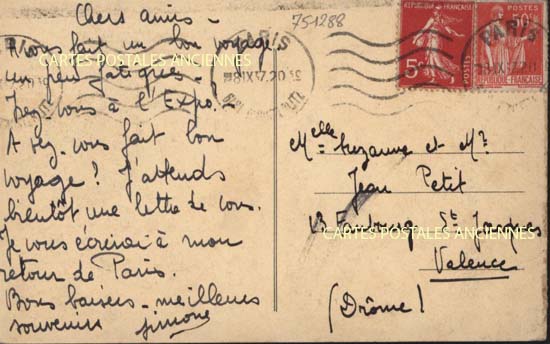 Chers amis -
751288
Avons fait un bon voyage
un peu fatigués -
Irez vous à l'Expo. -
Avez-vous fait bon
voyage ? J'attends
bientôt une lettre de vous.
Je vous écrirai à mon
retour de Paris.
Bons baisers - meilleurs
souvenirs Simone
PARIS
RÉPUBLIQUE FRANÇAISE
5c
POSTES
POSTES
50c
RÉPUBLIQUE FRANÇAISE
PARIS
Melle Suzanne et Mr
Jean Petit
13 Faubourg St Jacques
Valence
(Drôme)
CARTES POSTALES ANCIENNES
CARTES POSTALES ANCIENNES